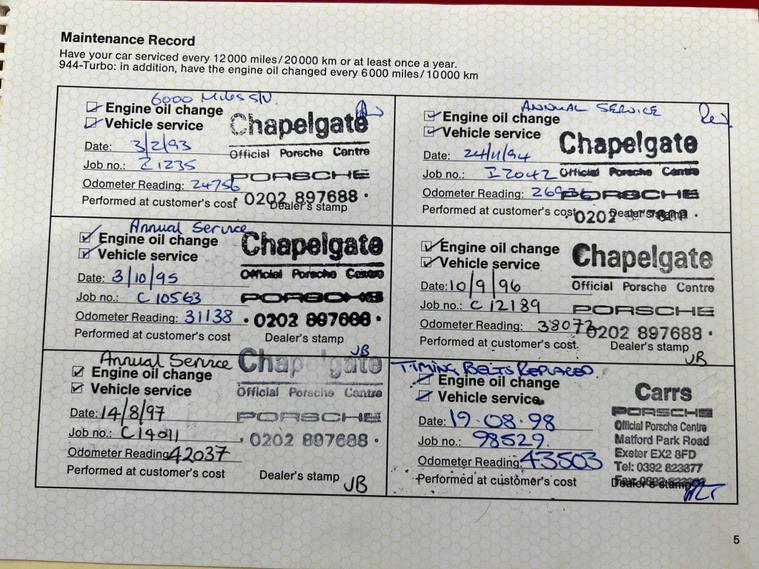 Maintenance Record
Have your car serviced every 12000 miles/20000 km or at least once a year.
944-Turbo: in addition, have the engine oil changed every 6000 miles/10000 km
6000 MILES S/V.
Engine oil change
Vehicle service
Date: 3/2/93
Job no.: Z1235
Odometer Reading: 24756
Performed at customer's cost
Chapelgate
Official Porsche Centre
PORSCHE
0202 897688
Dealer's stamp
ANNUAL SERVICE
Engine oil change
Vehicle service
Date: 24/11/94
Job no.: I2042
Odometer Reading:
Performed at customer's cost
Chapelgate
Official Porsche Centre
PORSCHE
0202
Dealer's stamp
Annual Service
Engine oil change
Vehicle service
Date: 3/10/95
Job no.: C10563
Odometer Reading: 31138
Performed at customer's cost
Chapelgate
Official Porsche Centre
PORSCHE
0202 897688
Dealer's stamp
JB
Engine oil change
Vehicle service
Date: 10/9/96
Job no.: C12189
Odometer Reading: 38072
Performed at customer's cost
Chapelgate
Official Porsche Centre
PORSCHE
0202 897688
Dealer's stamp
JB
Annual Service
Engine oil change
Vehicle service
Date: 14/8/97
Job no.: C14011
Odometer Reading: 42037
Performed at customer's cost
Chapelgate
Official Porsche Centre
PORSCHE
0202 897688
Dealer's stamp
JB
TIMING BELTS REPLACED.
Engine oil change
Vehicle service
Date: 19.08.98
Job no.: 98529.
Odometer Reading: 43503
Performed at customer's cost
Carrs
PORSCHE
Official Porsche Centre
Matford Park Road
Exeter EX2 8FD
Tel: 0392 823877
Dealer's stamp
5